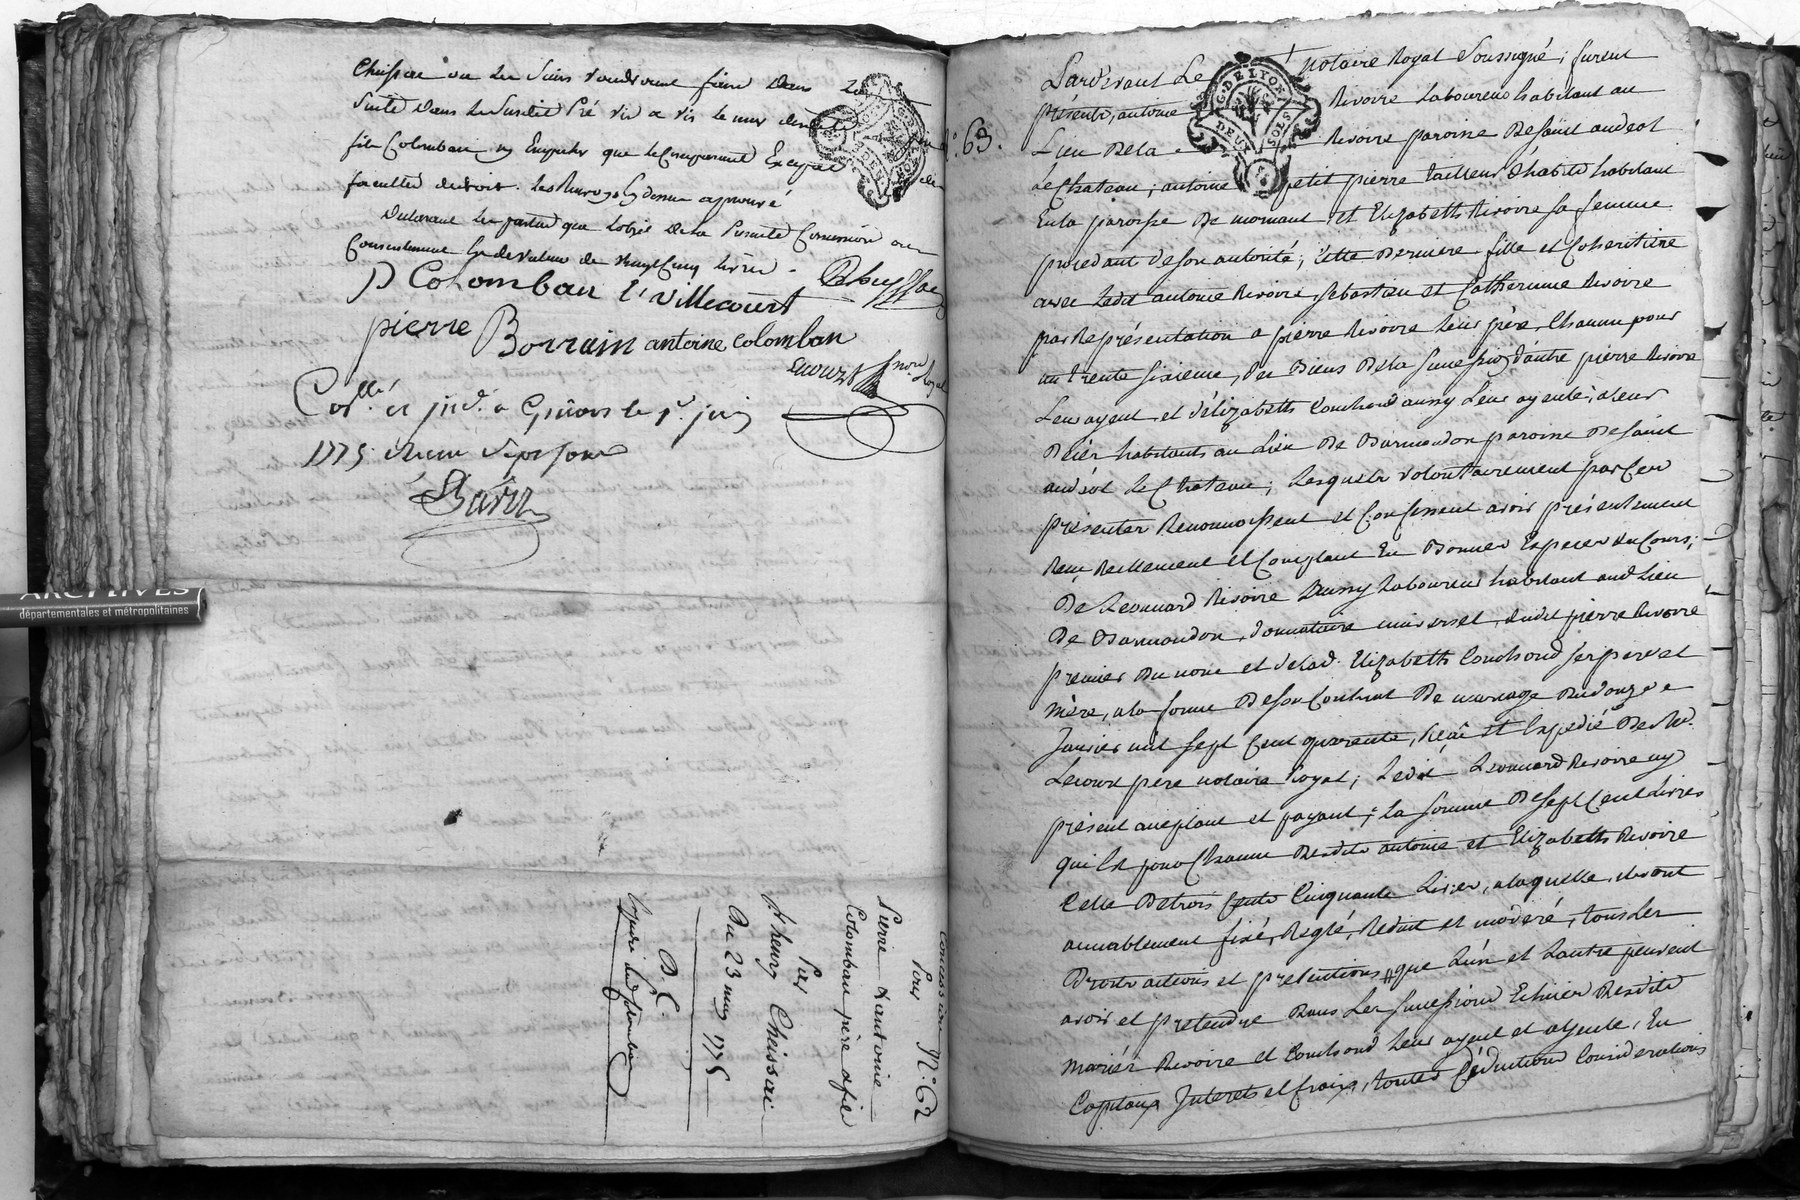 Cheissac ou les siens voudroient faire dans la
suitte dans le susdit Pré vis a vis le mur desdits
fils Colomban ny Empecher que le Comparant
faculté de droit. Les Renvoys cy dessus aprouvé
Declarant les parties que l'objet de la presente Concession ou
Consentement est de valeur de vingt Cinq livres.
P Colomban L Villecourt
pierre Borrain antoine colomban
Lecourt nore Royal
Collé. et juin
1775
Barz
ARCHIVES
départementales et métropolitaines
Concession N.o 62
Pour
Pierre & antoine
Colomban père & fils
Par
Sr henry Cheissac
Du 23 may 1775
n.o 63.
Pardevant Le notaire Royal Soussigné, furent
présents, antoine Rivoire Laboureur habitant au
Lieu de la Rivoire paroisse de saint andeol
Le Chateau; antoine petit pierre tailleur d'habits habitant
En la paroisse de mornant et Elizabeth Rivoire sa femme
procedant de son autorité; cette derniere fille et Coheritiere
avec Ledit antoine Rivoire, sebastien et Catherinne Rivoire
par Représentation a pierre Rivoire leur père, Chacun pour
un trente sixieme, des Biens de la succession d'autre pierre Rivoire
Leur ayeul et d'élizabeth Couchoud aussy Leur ayeule, d'eux
Déce habitants au Lieu De Darmandon paroisse De saint
andéol Le Chateau; Lesquels volontairement par Ces
présentes Reconnoissent et Confessent avoir présentement
Reçu Réellement et Comptant En Bonnes Especes du Cours;
De Leonnard Rivoire aussy Laboureur habitant aud. Lieu
De Darmandon, donnataire universel, dudit pierre Rivoire
premier du nom et de lad. Elizabeth Couchoud ses pere et
mère, a la forme De son Contrat De mariage du douze
Janvier mil sept Cent quarente, Reçu et Expedié De Me.
Lecourt pere notaire Royal; Ledit Leonnard Rivoire icy
présent acceptant et payant; la somme De sept Cent livres
qui Est pour Chacun Desdits antoine et Elizabeth Rivoire
Celle De trois Cents Cinquante Livres, a laquelle ils ont
amiablement fixé, Réglé, Réduit et modéré, tous Les
Droits actions et prétentions # que L'un et L'autre peuvent
avoir et prétendre Dans Les successions Echuies Desdits
mariés Rivoire et Couchoud Leur ayeul et ayeule, En
Capitaux Interets et fraix, toutes Déductions Considerations